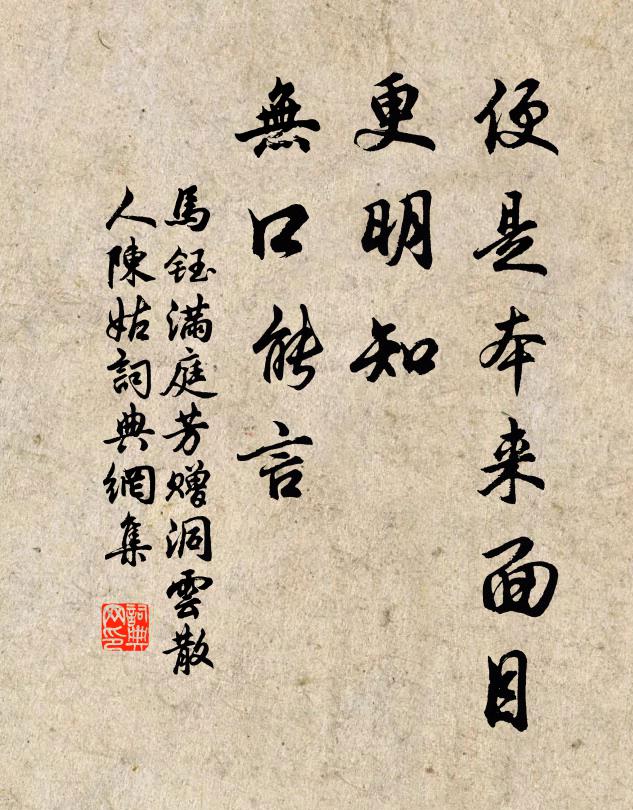 便是本来面目
更明知
無口能言
馬鈺満庭芳赠洞雲散
人陳姑詞典網集
詞典
网印